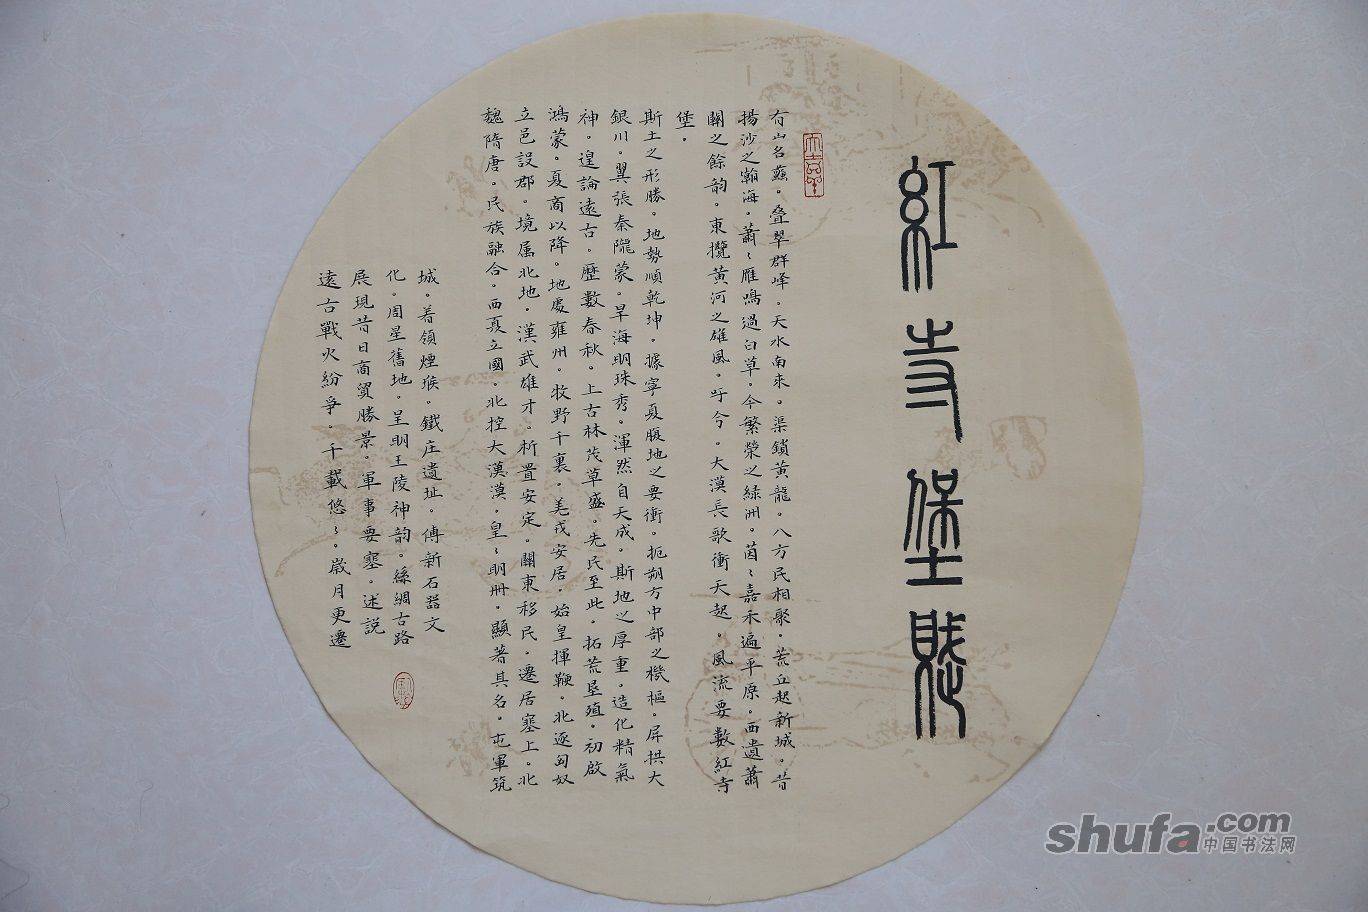 紅寺堡賦
有山名蠡。叠翠群峰。天水南來。渠鎖黃龍。八方民相聚。荒丘起新城。昔
揚沙之瀚海。蕭〻雁鳴過白草。今繁榮之綠洲。茵〻嘉禾遍平原。西遺蕭
關之餘韵。東攬黃河之雄風。吁今。大漠長歌衝天起。風流要數紅寺
堡。
斯土之形勝。地勢順乾坤。據寧夏腹地之要衝。扼朔方中部之機樞。屏拱大
銀川。翼張秦隴蒙。旱海明珠秀。渾然自天成。斯地之厚重。造化精氣
神。遑論遠古。歷數春秋。上古林茂草盛。先民至此。拓荒垦殖。初啟
鴻蒙。夏商以降。地處雍州。牧野千裏。羌戎安居。始皇揮鞭。北逐匈奴
立邑設郡。境属北地。漢武雄才。析置安定。關東移民。遷居塞上。北
魏隋唐。民族融合。西夏立國。北控大漢漠。皇〻明册。顯著其名。屯軍筑
城。着領煙堠。鐵庄遺址。傅新石器文
化。周星舊地。呈明王陵神韵。絲綢古路
展現昔日商貿勝景。軍事要塞。述説
遠古戰火紛爭。千載悠〻。嵗月更遷
shufa.com
中国书法网